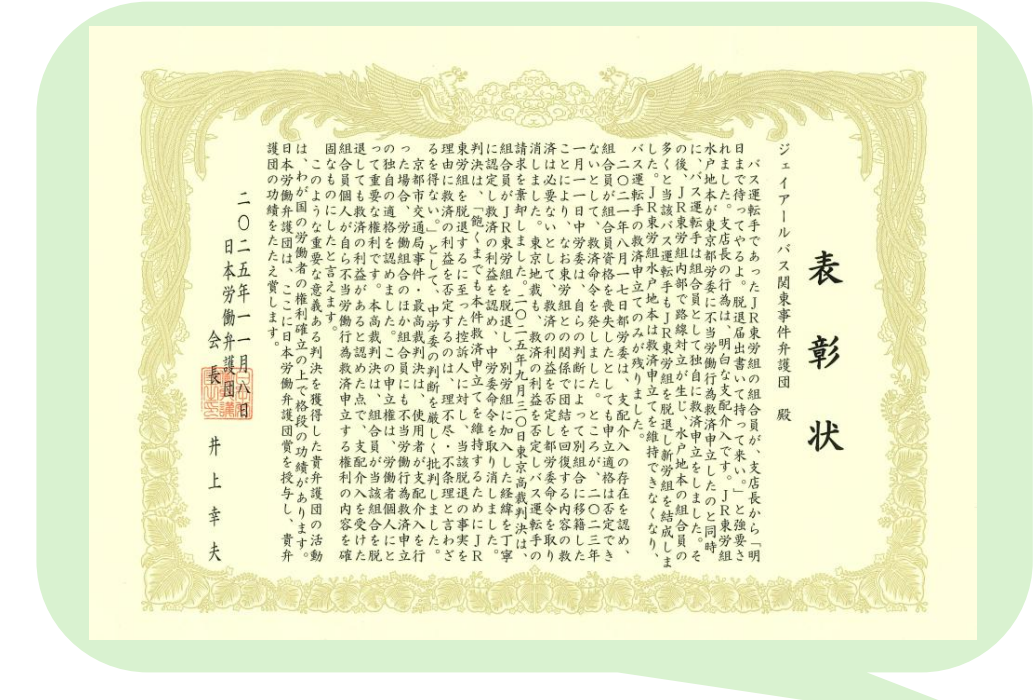 表彰状
ジェイアールバス関東事件弁護団 殿
バス運転手であったJR東労組の組合員が、支店長から「明
日まで待ってやるよ。脱退届出書いて持って来い。」と強要さ
れました。支店長の行為は、明白な支配介入です。JR東労組
水戸地本が東京都労委に不当労働行為救済申立したのと同時
に、バス運転手は組合員として独自に救済申立をしました。そ
の後、JR東労組内部で路線対立が生じ、水戸地本の組合員の
多くと当該バス運転手もJR東労組を脱退し新労組を結成しま
した。JR東労組水戸地本は救済申立てを維持できなくなり、
バス運転手の救済申立てのみが残りました。
二〇二一年八月一七日都労委は、支配介入の存在を認め、
組合員が組合員資格を喪失したとしても申立適格は否定でき
ないとして、救済命令を発しました。ところが、二〇二三年
一月一一日中労委は、自らの判断によって別組合に移籍した
ことにより、なお東労組との関係で団結を回復する内容の救
済は必要ないとして、救済の利益を否定し都労委命令を取り
消しました。東京地裁も、救済の利益を否定しバス運転手の
請求を棄却しました。二〇二五年九月三〇日東京高裁判決は、
組合員がJR東労組を脱退し、別労組に加入した経緯を丁寧
に認定し救済の利益を認め、中労委命令を取り消しました。
判決は、「飽くまでも本件救済申立てを維持するためにJR
東労組を脱退するに至った控訴人に対し、当該脱退の事実を
理由に救済の利益を否定するのは、理不尽・不条理と言わざ
るを得ない。」として、中労委の判断を厳しく批判しました。
京都市交通局事件・最高裁判決は、使用者が支配介入を行
った場合、労働組合のほか組合員にも不当労働行為救済申立
の独自の適格を認めました。この申立権は、労働者個人にと
って重要な権利です。本高裁判決は、組合員が当該組合を脱
退しても救済の利益があると認めた点で、支配介入を受けた
組合員個人が自ら不当労働行為救済申立する権利の内容を確
固なものにしたと言えます。
このような重要な意義ある判決を獲得した貴弁護団の活動
は、わが国の労働者の権利確立の上で格段の功績があります。
日本労働弁護団は、ここに日本労働弁護団賞を授与し、貴弁
護団の功績をたたえ賞します。
二〇二五年一一月八日
日本労働弁護団
会長 井上幸夫